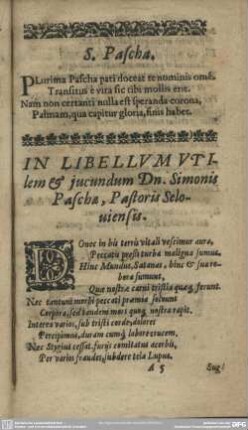 S. Pascha.
PLurima Pascha pati doceat te nominis omē.
Transitus è vita sic tibi mollis erit.
Nam non certanti nulla est speranda corona,
Palmam, qua capitur gloria, finis habet.
IN LIBELLVM VTI-
lem & jucundum Dn. Simonis
Paschæ, Pastoris Selo-
viensis.
DOnec in his terris vitali vescimur aura,
Peccato pressi turba maligna sumus,
Hinc Mundus, Satanas, hinc & sua ro-
bora sumunt,
Quæ nostræ carni tristia quæq; ferunt.
Nec tantum morbi peccati præmia
Corpora, sed tandem mors quoq; nostra rapit.
Interea varios, sub tristi corde, dolores
Percipimus, duram cumq; labore crucem.
Nec Stygius cessat, furijs comitatus acerbis,
Per varias fraudes, subdere tela Lupus.
A 5